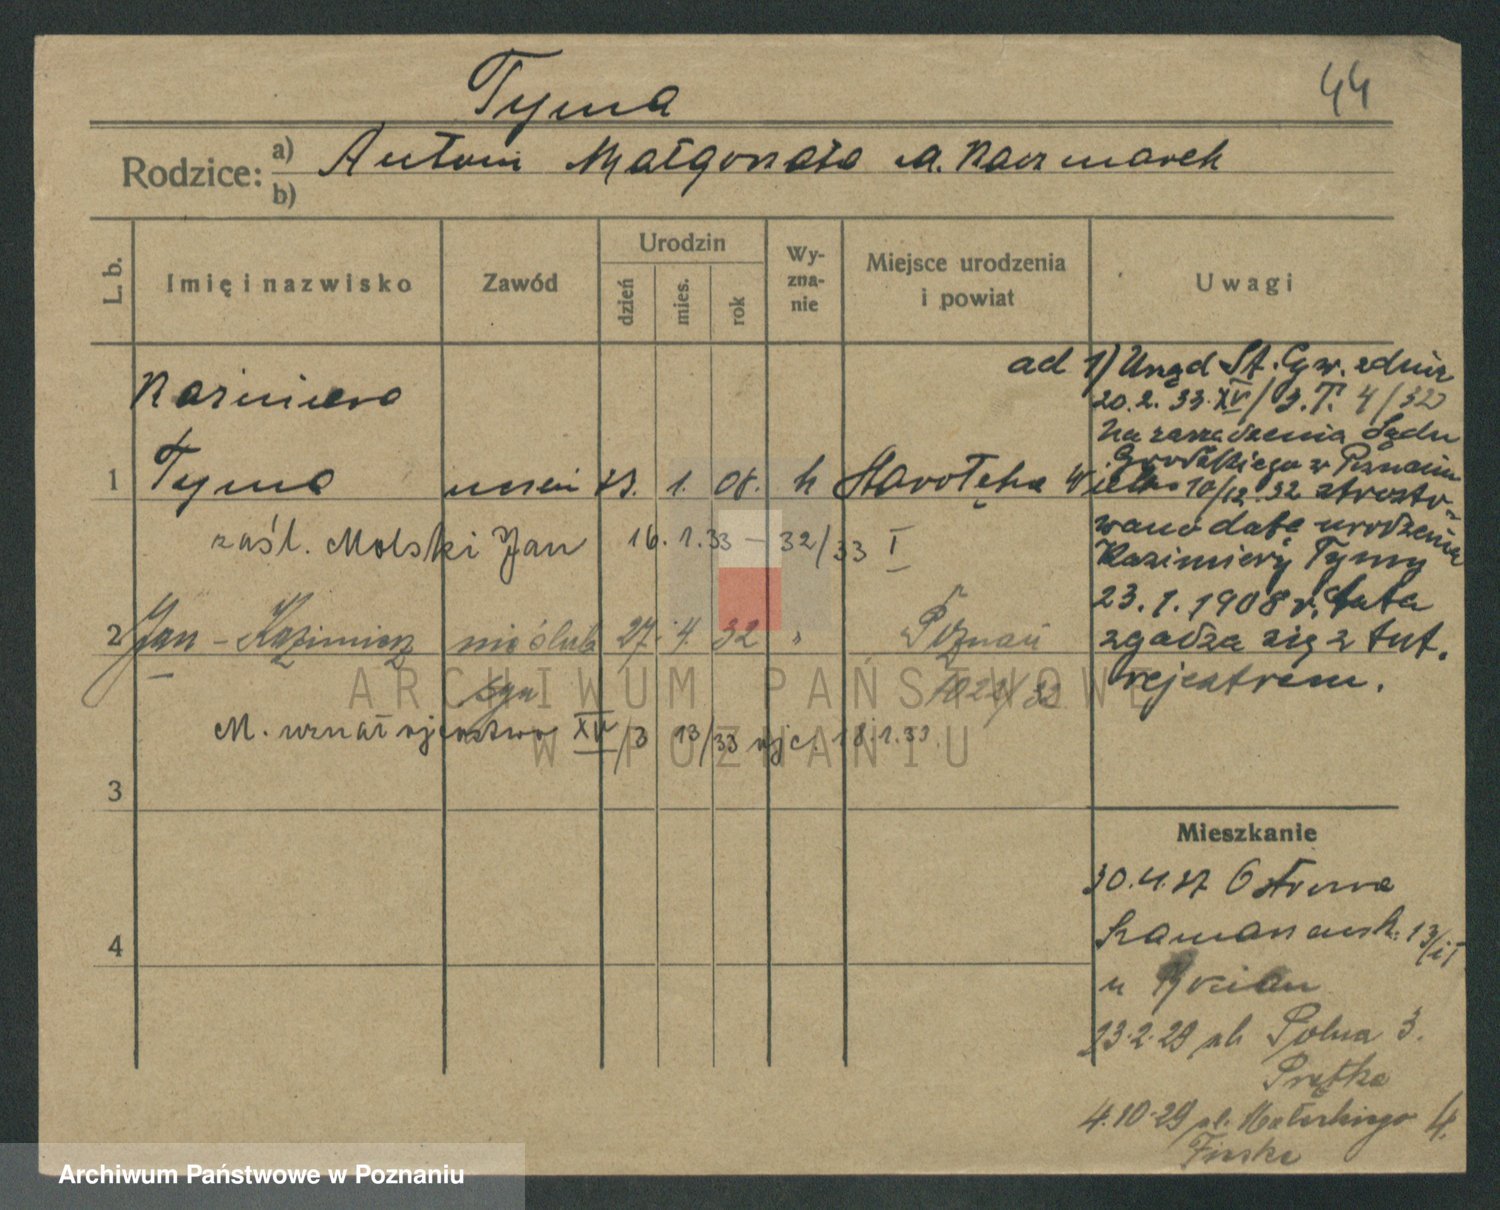 Tyma
44
Rodzice: a) Antoni Małgorzata z d. Kaczmarek
b)
L. b. Imię i nazwisko Zawód Urodzin dzień mies. rok Wy-zna-nie Miejsce urodzenia i powiat Uwagi
ad 1) Urząd St. Cyw. zdnia
20.2.33. XV/3.T. 4/32
Kazimiera
na zarządzenia Sądu
Grodzkiego w Poznaniu
1 Tyma 23. 1. 08. k Starołęka Wielka
10/12.32 sprosto-
wano datę urodzenia
zaśl. Molski Jan 16.1.33 – 32/33 I
Kazimiery Tymy
23.1.1908 r. data
2 Jan - Kazimierz nieślub 27. 4 32 " Poznań
zgadza się z tut.
syn 1022/32
rejestrem.
M. uznał ojcostwo XV/3 13/33 ojc. 18.1.33.
3
Mieszkanie
30.4.27
4
13/II
u
23.2.29 ul. Polna 3.
4.10.29 4.
ARCHIWUM PAŃSTWOWE
W POZNANIU
Archiwum Państwowe w Poznaniu